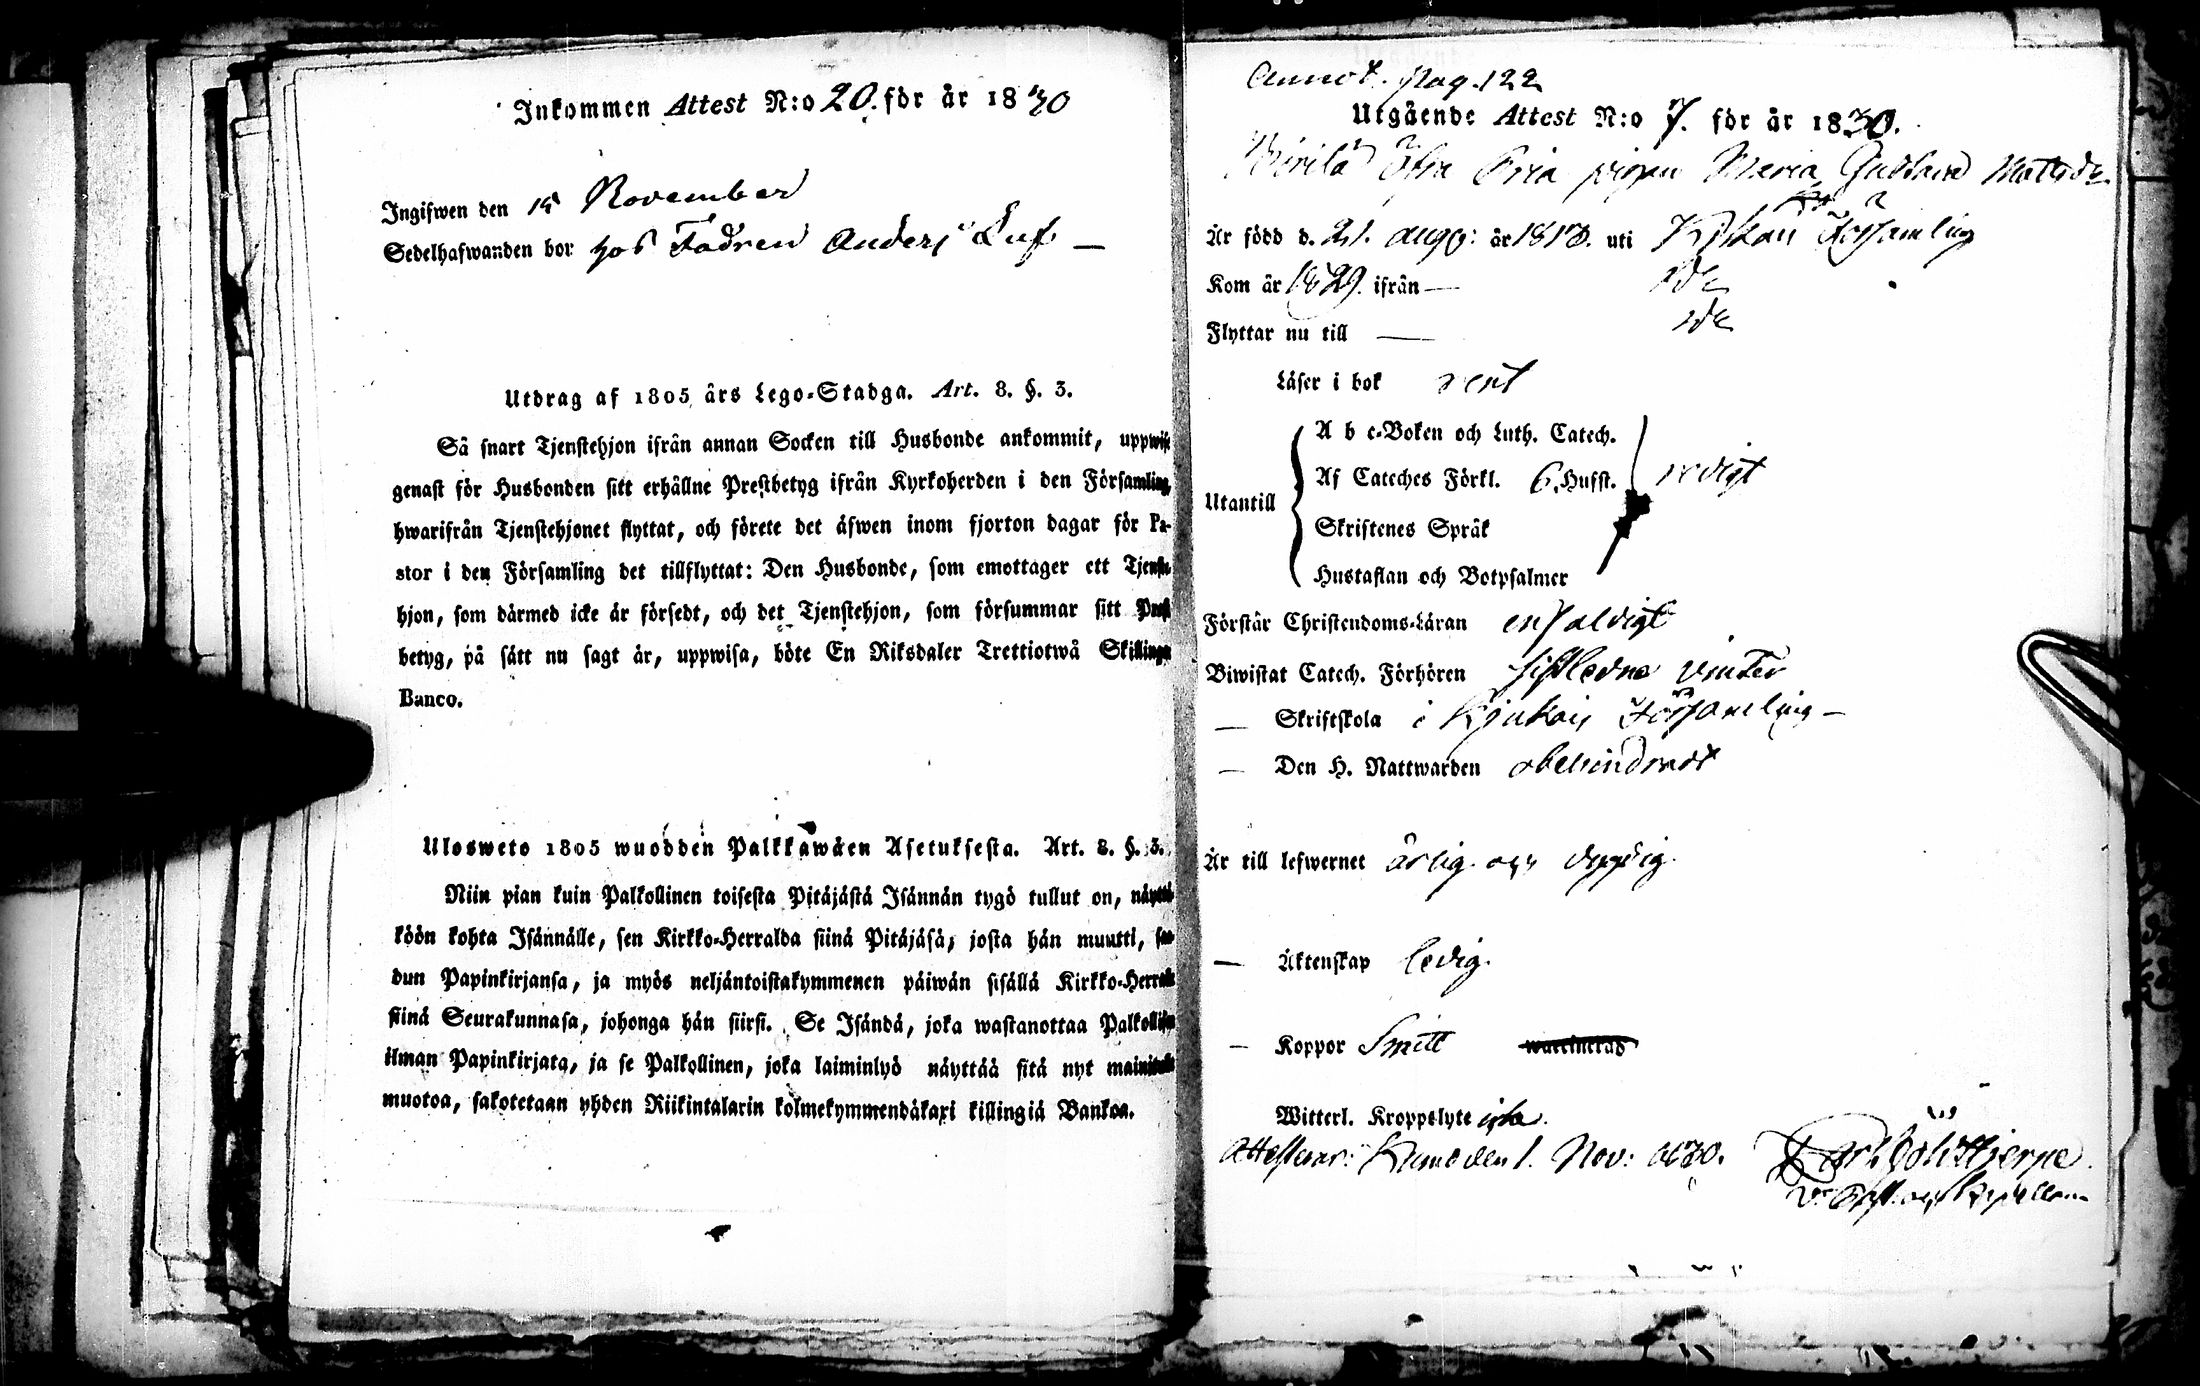 Inkommen Attest N:o 20. för år 1830
Ingifwen den 15 November
Sedelhafwanden bor hos Fadren Anders
Utdrag af 1805 års Lego-Stadga. Art. 8. §. 3.
Så snart Tjenstehjon ifrån annan Socken till Husbonde ankommit, uppwise
genast för Husbonden sitt erhållne Prestbetyg ifrån Kyrkoherden i den Församling
hwarifrån Tjenstehjonet flyttat, och förete det äfwen inom fjorton dagar för Pa-
stor i den Församling det tillflyttat: Den Husbonde, som emottager ett Tjenste
hjon, som därmed icke är försedt, och det Tjenstehjon, som försummar sitt Prest
betyg, på sätt nu sagt är, uppwisa, böte En Riksdaler Trettiotwå Skillingar
Banco.
Ulosweto 1805 wuodden Palkkawäen Asetuksesta. Art. 8. §. 3.
Niin pian kuin Palkollinen toisesta Pitäjästä Isännän tygö tullut on, näyttä
köön kohta Isännälle, sen Kirkko-Herralda siinä Pitäjäsä, josta hän muutti, saa
dun Papinkirjansa, ja myös neljäntoistakymmenen päiwän sisällä Kirkko-Herralle
siinä Seurakunnasa, johonga hän siirsi. Se Isändä, joka wastanottaa Palkollisen
ilman Papinkirjata, ja se Palkollinen, joka laiminlyö näyttää sitä nyt mainitulla
muotoa, sakotetaan yhden Riikintalarin kolmekymmendäkaxi killingiä Bankoa.
Annot. pag. 122
Utgående Attest N:o 7. för år 1830.
Öfra pigan Maria Gustava Mattsdr
Är född d. 21. aug: år 1813. uti Kjukais Församling
Kom år 1829. ifrån — dc
Flyttar nu till — dc
Läser i bok rent
A b c-Boken och Luth. Catech.
Af Cateches Förkl. 6. Hufst. redigt
Utantill
Skriftenes Språk
Hustaflan och Botpsalmer
Förstår Christendoms-Läran enfaldigt
Biwistat Catech. Förhören sistledne vinter
— Skriftskola i Kjukais Församling —
— Den H. Nattwarden obehindradt
Är till lefwernet ärlig och
— Äktenskap ledig.
— Koppor Smitt waccinerad
Witterl. Kroppslyte icke.
Attesterar: Kumo den 1. Nov: 1830.